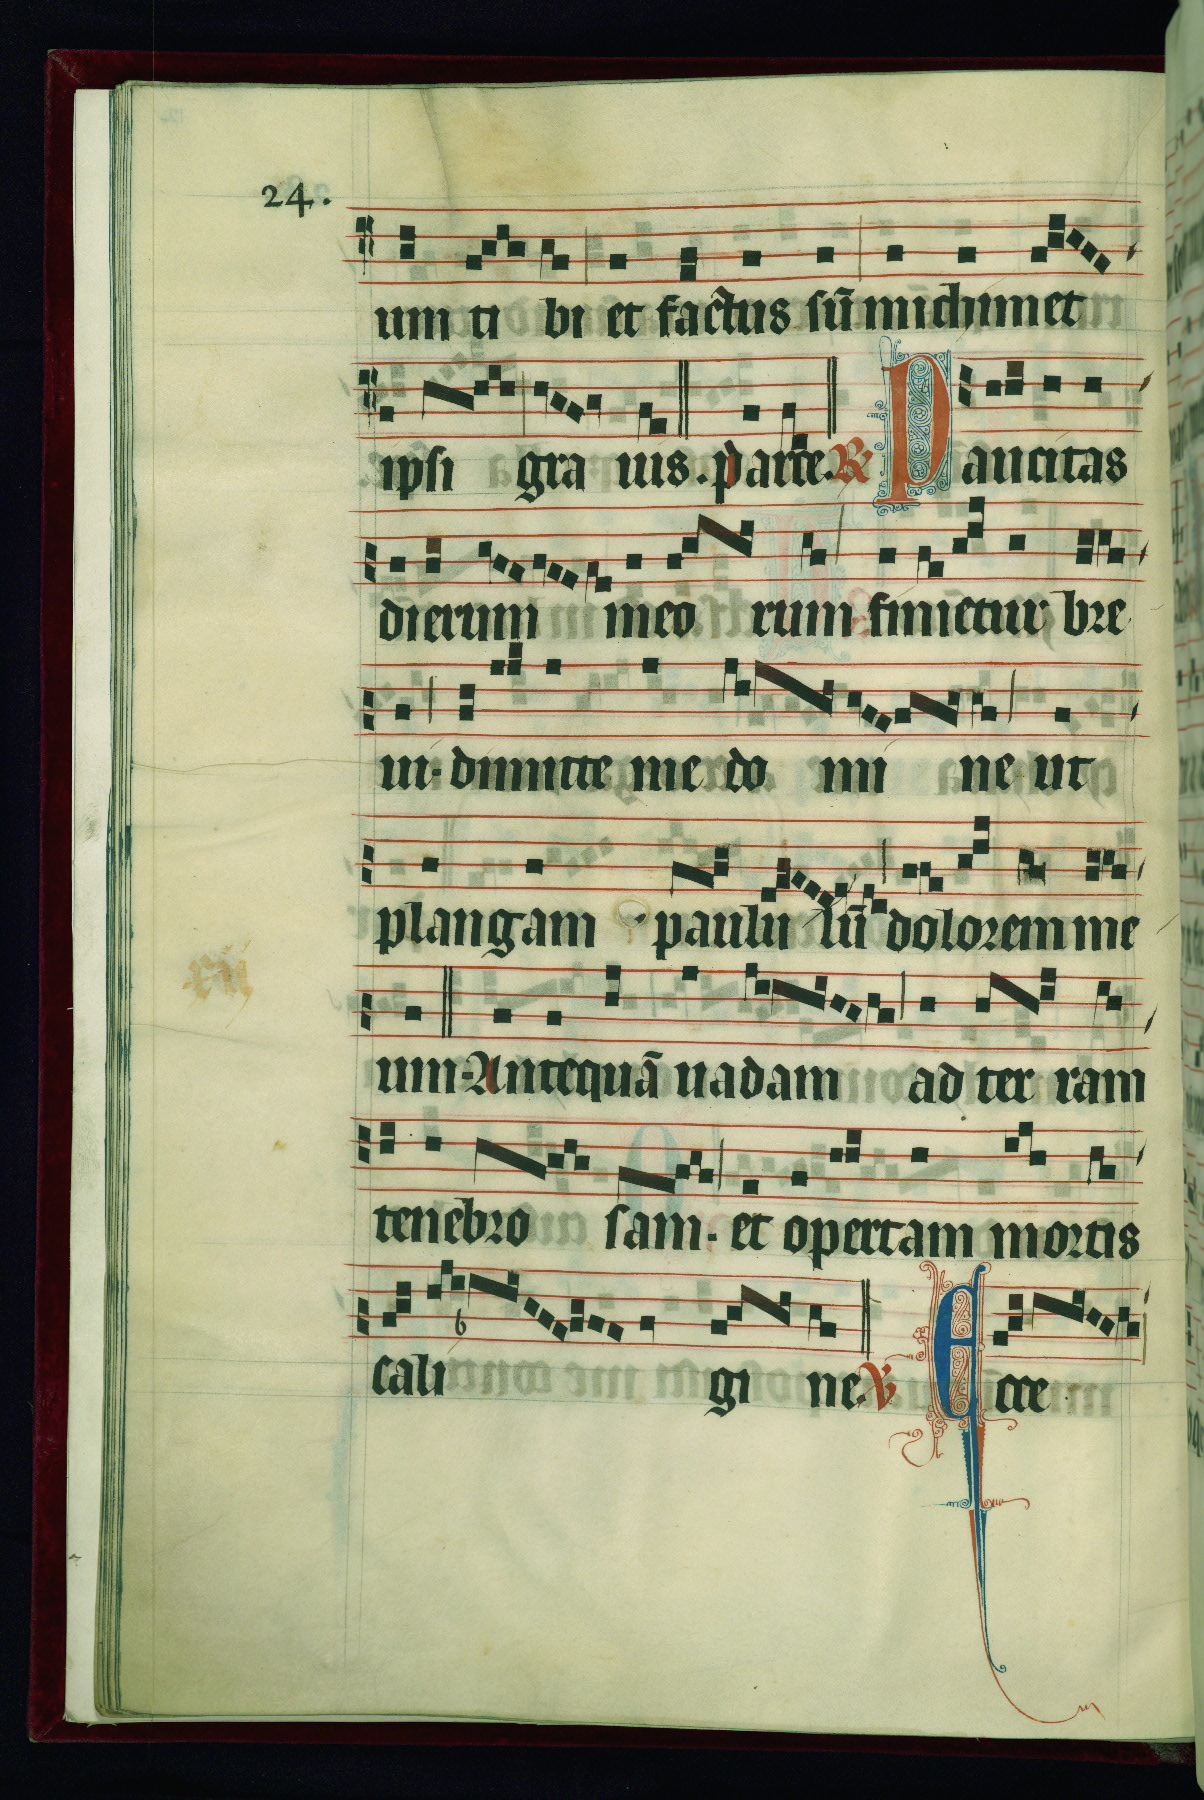 24.
um ti bi et factus sū michimet
ipsi gra uis. parce. ℟ Paucitas
dierum meo rum finietur bre
ui. dimitte me do mi ne ut
plangam paulu lū dolorem me
um. Antequā uadam ad ter ram
tenebro sam. et opertam mortis
cali gi ne. ℣ Ecce